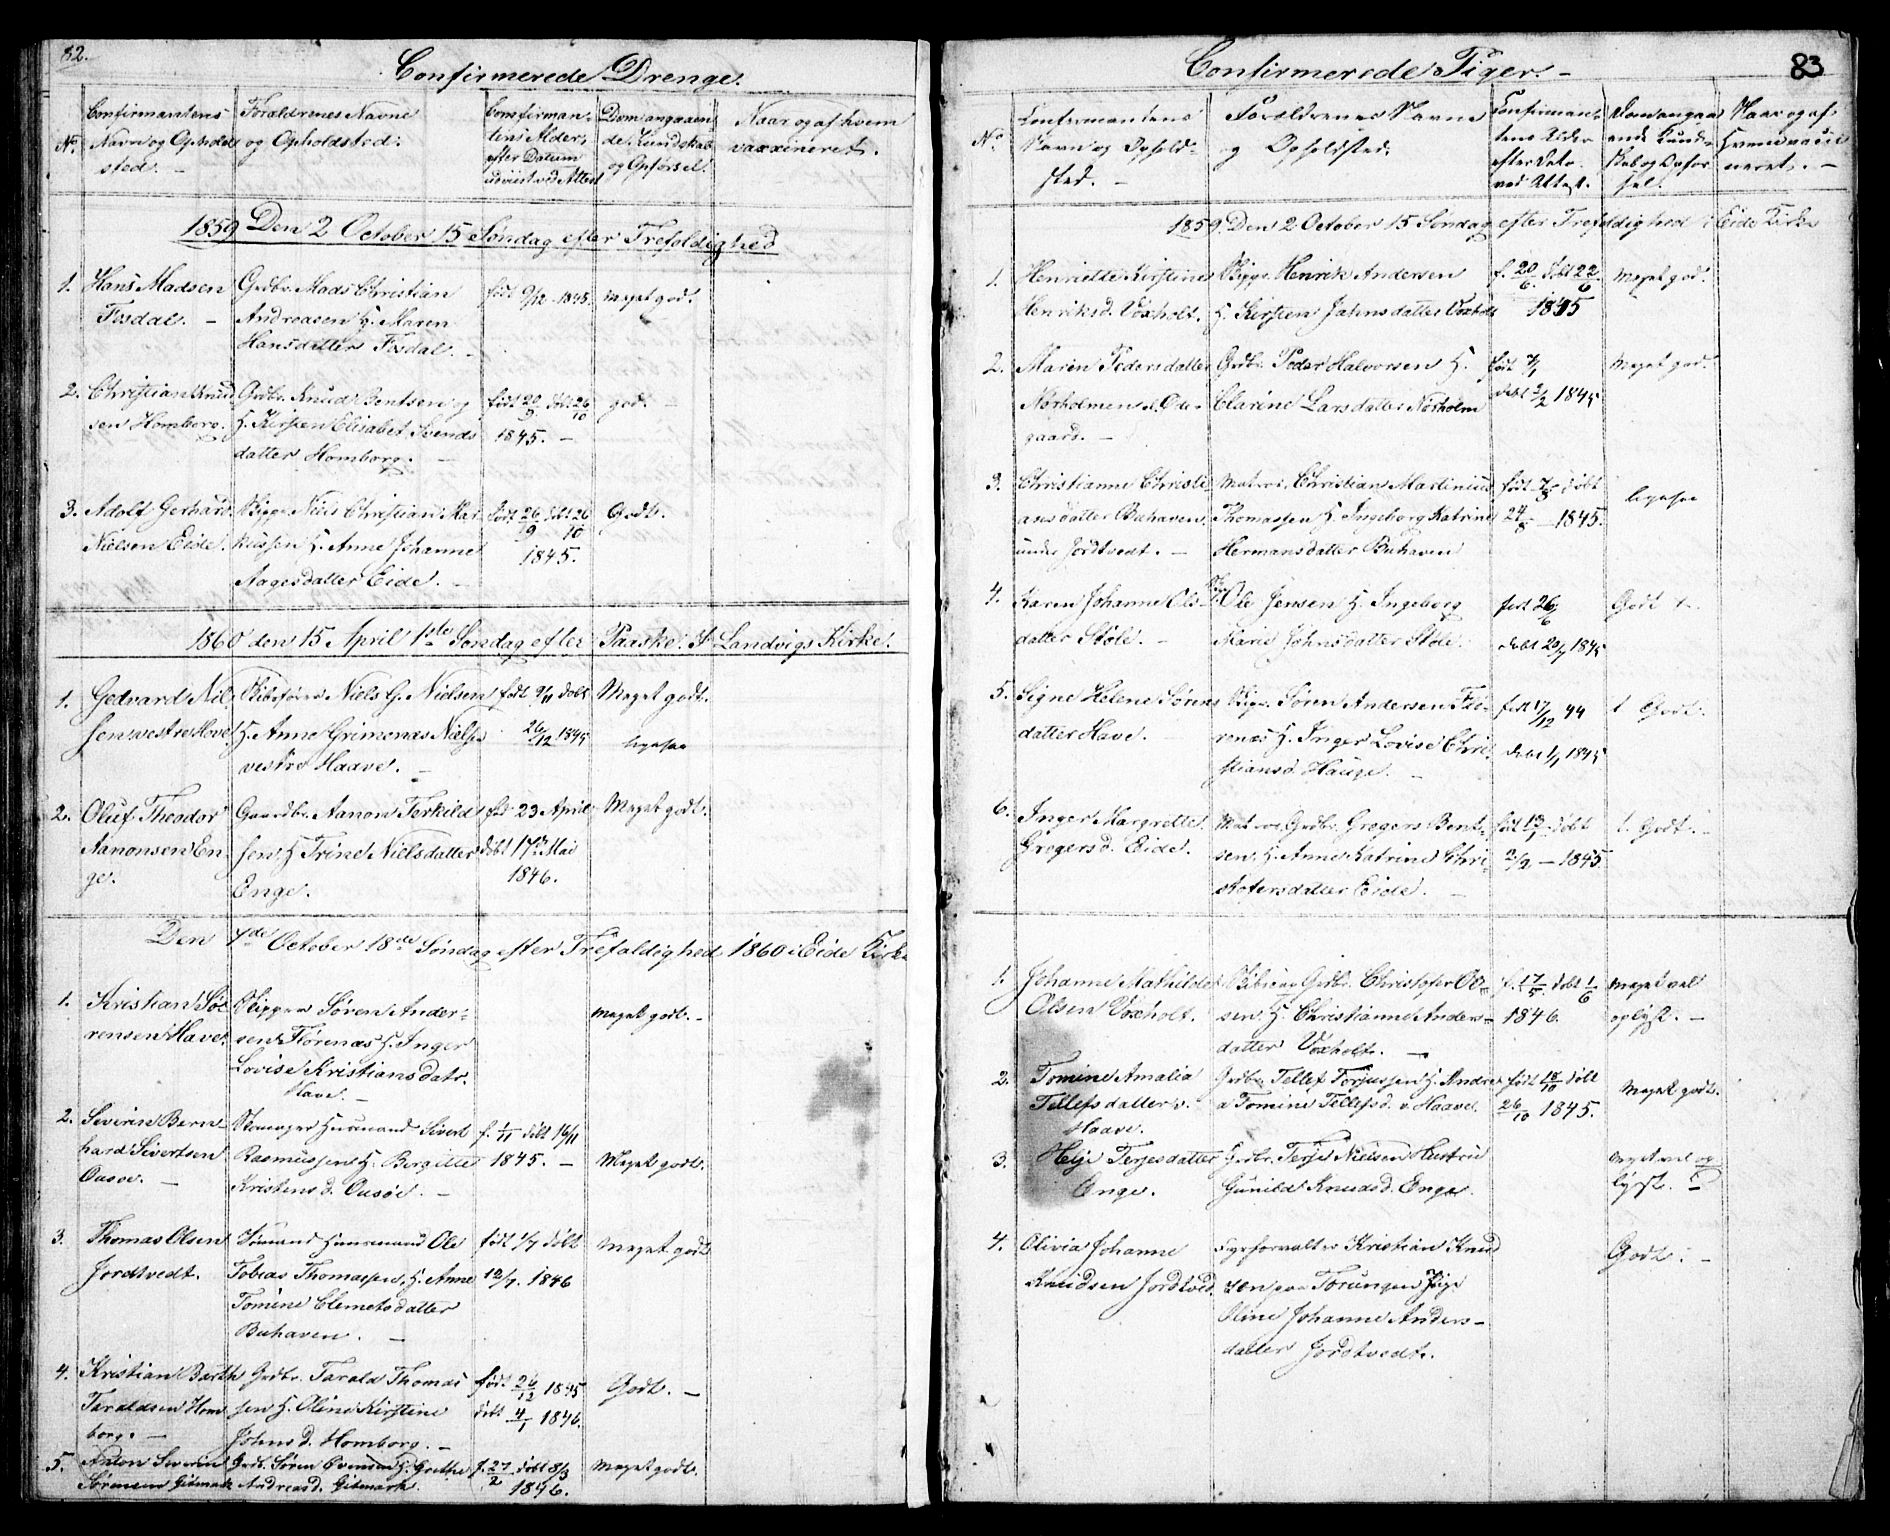 82.
Confirmerede Drenge.
No.
Confirmantens
Navn og Ophold
sted. —
Forældrenes Navne
og Opholdsted:
Confirman-
tens Alder,
efter Datum
udviist ved Attest
Dom angaaen
de Kundskab
og Opførsel.
Naar og af hvem
vaxxineret.
1859 Den 2 October 15 Søndag efter Trefoldighed
1. Hans Madsen
Fosdal. —
Grdbr. Mads Christian
Andreasen H. Maren
Hansdatter Fosdal. —
født 9/12 1845.
Meget god.
2. Christian Knud
sen Homborg.
Grdbr. Knud Bentsen og
H. Kirsten Elisabet Svends
datter Homborg. —
født 20/9 døbt 26/10
1845. —
god. —
3. Adolf Gerhard
Nielsen Eide.
Skipper Niels Christian Mar
kussen H. Anne Johanne
Aagesdatter Eide. —
født 26/9 døbt 26/10
1845.
Godt.
1860 den 15 April 1ste Søndag efter Paaske. I Landvigs Kirke.
1. Gedvard Nil
sen vestre Hove
Skibsfører Niels G. Nielsen
H. Anne Grimenæs Nielsd
vestre Haave. —
født 9/11 døbt
26/12 1845
Meget godt.
ligesaa
2. Oluf Theodor
Aanonsen En-
ge.
Gaardbr. Aanon Terkild
sen H Trine Nielsdatter
Enge.
fød 23 April
døbt 17de Mai
1846.
Meget godt.
Den 7de October 18de Søndag efter Trefaldighed 1860 i Eide Kirke
1. Kristian Sø-
rensen Have.
Skipper Søren Ander-
sen Fiørenæs H. Inger
Lovise Kristians datr.
Have. —
Meget godt. —
2. Severin Bern
hard Sivertsen
Ousøe. —
Husmand Sivert
Rasmussen H. Bergitte
Kristens d. Ousøe. —
f. 1/11 døbt 16/11
1845. —
Meget godt.
3. Thomas Olsen
Jordtvedt.
Sømand Huusmand Ole
Tobias Thomassen, H. Anne
Tomine Clemetsdatter
Buhaven. —
født 1/7 døbt
12/7. 1846
Meget godt
4. Kristian Barth
Taraldsen Hom
borg. —
Grdbr. Tarald Thomas
sen H. Oline Kirstine
Johns d. Homborg. —
født 26/12 1845
døbt 4/1 1846.
Godt. —
5. Anton Severin
Sørensen Gitmark
Grdb. Søren Evensen H. Grethe
Andreasd. Gitmark.
f. 27/2 døbt 8/3
1846.
Meget godt.
Confirmerede Piger. —
83
No.
Confermantens
Navn og Ophold-
sted. —
Forældrenes Navne
og Opholdsted.
Confirman-
tens Alder
efter Dato
ved Attest.
Dom angaa
ende Kund-
skab og Opfør
sel.
Naar og af
hvem vaxci
neret. —
1859. Den 2 October 15 Søndag efter Trefoldighed i Eide Kirke
1. Henriette Kirstine
Henriksd. Voxholt.
Skipp. Henrik Andersen
H. Kirsten Jahnsdatter Voxholt
f. 20/6. døbt 22/6
1845
Meget god.
2. Maren Pedersdatter
Nørholmen
gaard. —
Grdbr. Peder Halvorsen H.
Clarine Larsdatter Nørholm
født 7/1
døbt 2/2 1845
Meget god.
3. Christianne Christi-
ansdatter Buhaven
under Jordtvedt. —
Matros, Christian Martinius
Thomassen H. Ingeborg Katrine
Hermansdatter Buhaven
født 7/8 døbt
24/8 — 1845.
ligesaa
4. Karen Johanne Ols
datter Støle. —
Ole Jensen H. Ingeborg
Marie Johnsdatter Støle.
født 26/6
døbt 20/7 1845
Godt
5. Signe Helene Sørens
datter Have.
Skipr. Søren Andersen Fiø-
renæs H. Inger Lovise Chri-
stians d. Hauge. —
født 17/12 44
døbt 1/1 1845
Godt.
6. Inger Margrette
Gregers d. Eide.
Matros Grdbr. Gregers Bent-
sen H. Anne Katrine Chri-
stofersdatter Eide. —
født 13/1 døbt
2/2 — 1845.
Godt. —
1. Johanne Mathilde
Olsen Voxholt.
Grdbr. Christopher Ol-
sen H. Christianne Anders-
datter Voxholt. —
f. 17/5. døbt 1/6
1846.
Meget vel
oplyst. —
2. Tomine Amalia
Tellefsdatter v.
Haave.
Grdbr. Tellef Torjussen H. Andre
a Tomine Tellefsd. v. Haave.
født 18/10 døbt
26/10 1845.
Meget godt.
3. Helje Terjesdatter
Enge.
Grdbr. Terje Nielsen Hustru
Gunild Knudsd. Enge.
Meget vel op
lyst. —
4. Olivia Johanne
Knudsen Jordtved.
Fyrforvalter Kristian Knud
sen paa Torungen Pige
Oline Johanne Anders-
datter Jordtvedt.
Godt. —